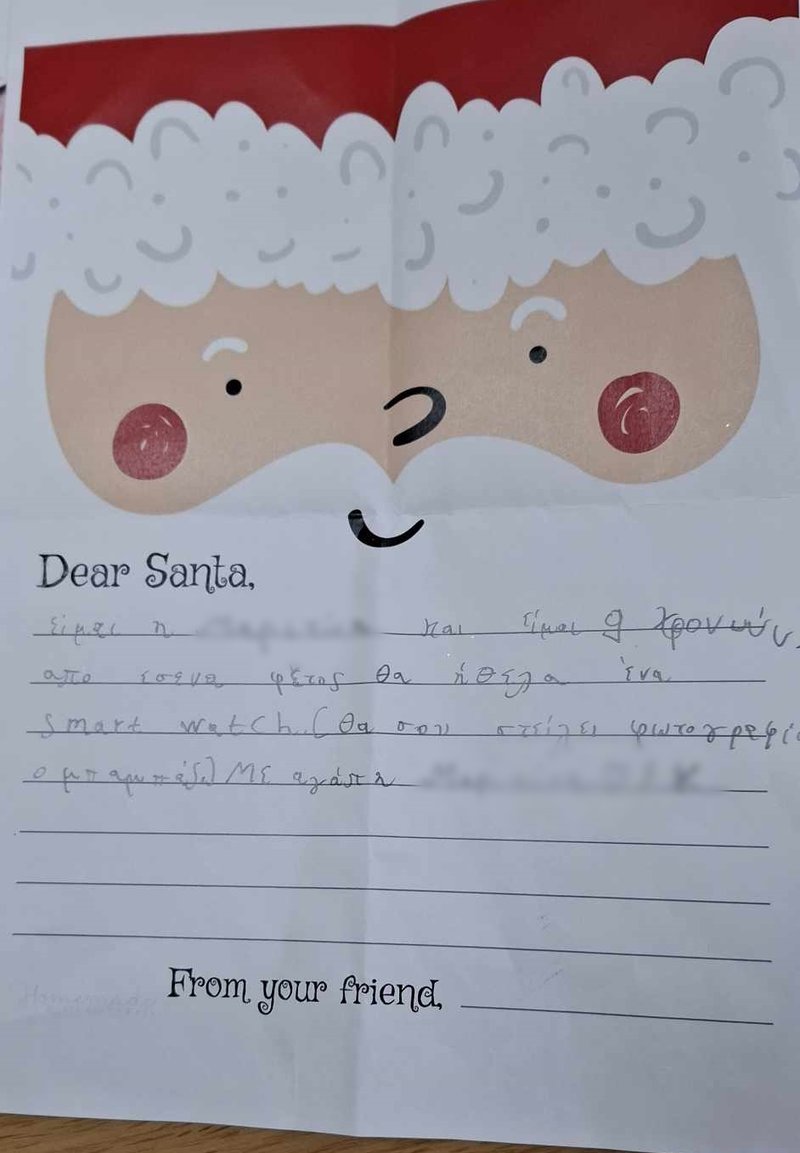 Dear Santa,
είμαι η και είμαι 9 χρονών,
απο εσενα φέτος θα ήθελα ένα
smart watch. (θα σου στείλει φωτογραφία
ο μπαμπάς) Με αγάπη
From your friend,